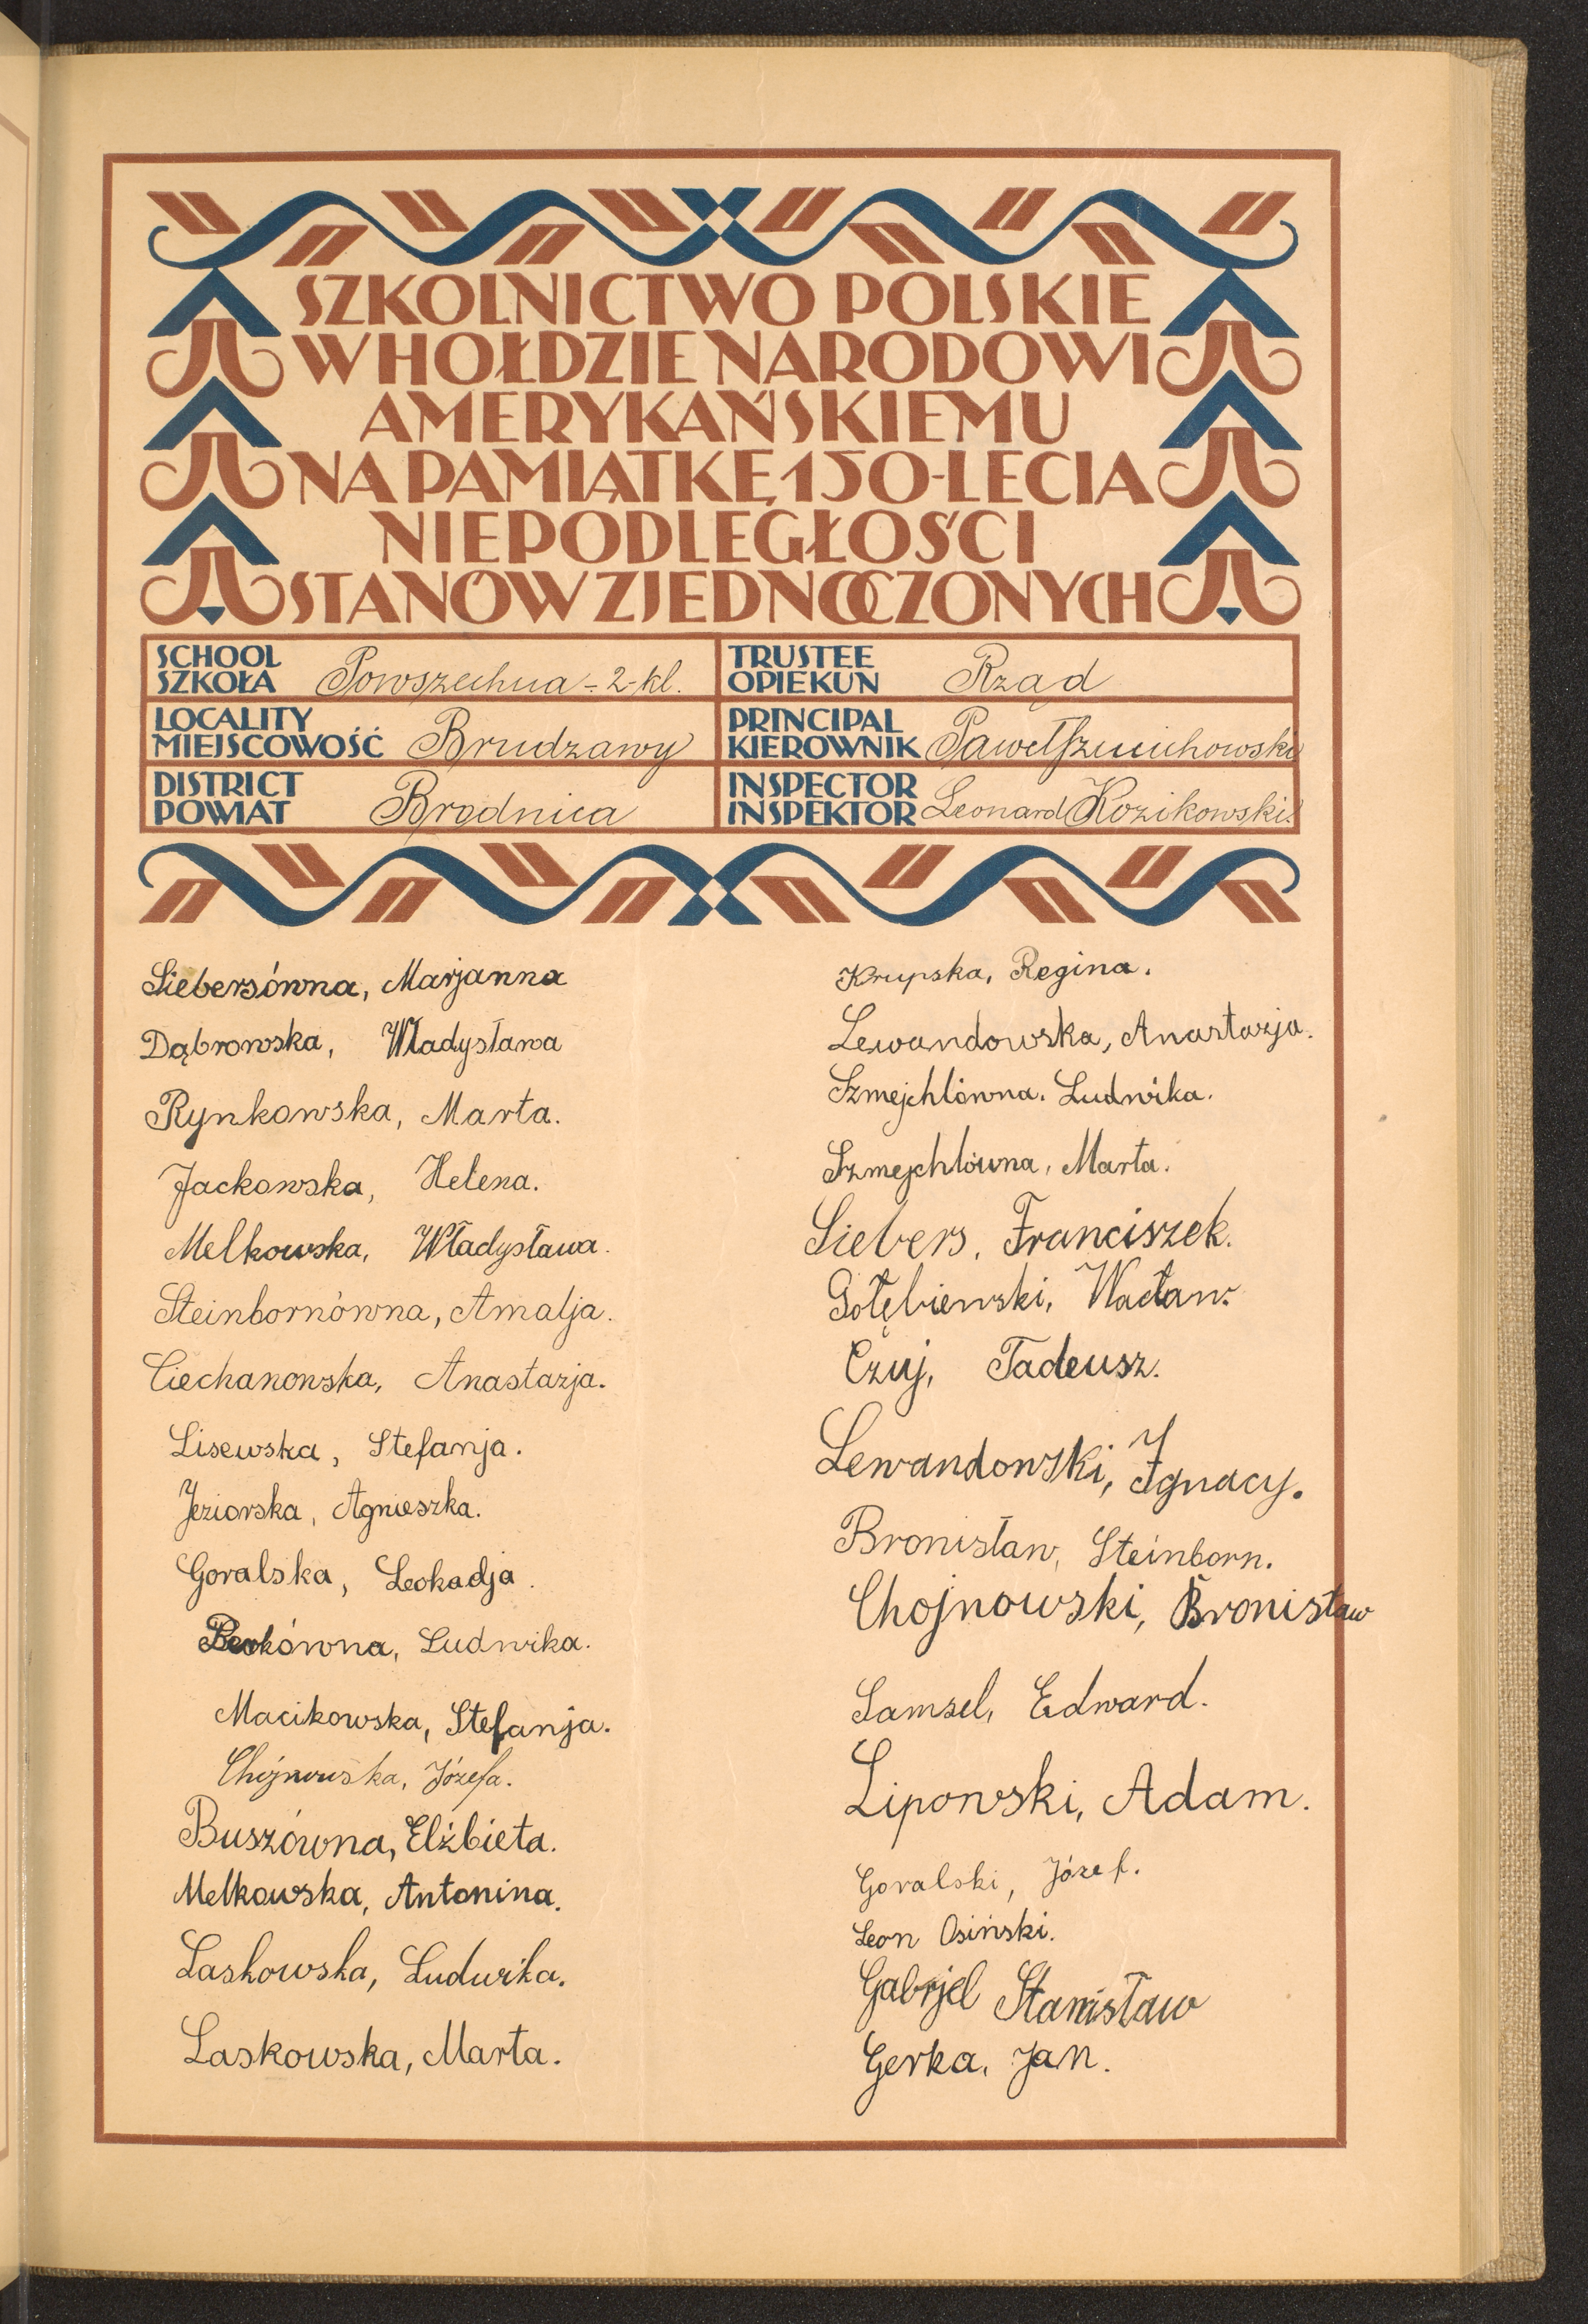 SZKOLNICTWO POLSKIE
W HOŁDZIE NARODOWI
AMERYKAŃSKIEMU
NA PAMIĄTKĘ 150-LECIA
NIEPODLEGŁOŚCI
STANÓW ZJEDNOCZONYCH
SCHOOL
SZKOŁA Powszechna - 2-kl.
TRUSTEE
OPIEKUN Rząd
LOCALITY
MIEJSCOWOŚĆ Brudzawy
PRINCIPAL
KIEROWNIK Paweł
DISTRICT
POWIAT Brodnica
INSPECTOR
INSPEKTOR Leonard Kozikowski.
Siebersówna, Marjanna
Dąbrowska, Władysława
Rynkowska, Marta.
Jackowska, Helena.
Melkowska, Władysława.
Steinbornówna, Amalja.
Ciechanowska, Anastazja.
Lisewska, Stefanja.
Jeziorska, Agnieszka.
Goralska, Leokadja.
Ludwika.
Macikowska, Stefanja.
Chojnowska, Józefa.
Buszówna, Elżbieta.
Melkowska, Antonina.
Laskowska, Ludwika.
Laskowska, Marta.
Krupska, Regina.
Lewandowska, Anastazja.
Szmejchlówna. Ludwika.
Szmejchlówna, Marta.
Siebers, Franciszek.
Gołębiewski, Wacław.
Czuj, Tadeusz.
Lewandowski, Ignacy.
Bronisław, Steinborn.
Chojnowski, Bronisław
Samsel, Edward.
Lipowski, Adam.
Goralski, Józef.
Leon Osiński.
Gabrjel Stanisław
Gerka, Jan.